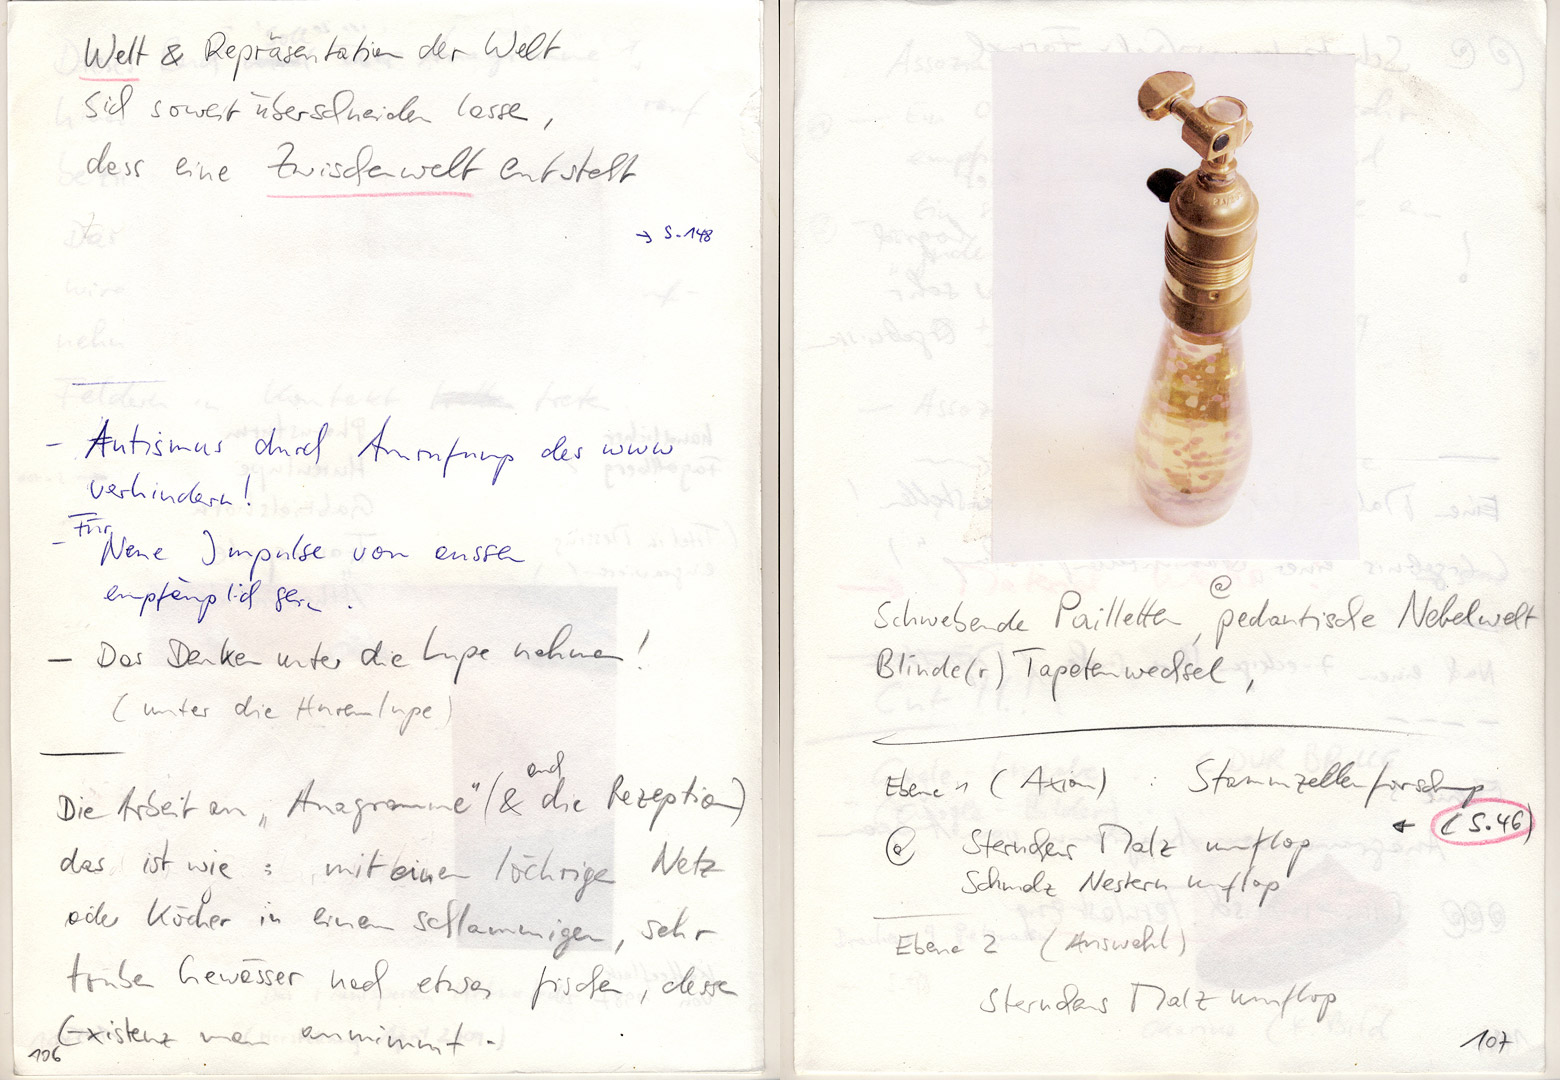 Welt & Repräsentation der Welt
sich soweit überschneiden lassen,
dass eine Zwischenwelt entsteht
→ S. 148
- Autismus durch Anrufung des www
verhindern!
- Für Neue Impulse von aussen
empfänglich sein.
- Das Denken unter die Lupe nehmen!
(unter die Hurenlupe)
Die Arbeit an „Anagramme" (& auch die Rezeption)
das ist wie: mit einem löchrigen Netz
oder Köcher in einem schlammigen, sehr
trüben Gewässer nach etwas fischen, dessen
Existenz man annimmt.
106
@
Schwebende Pailletten, pedantische Nebelwelt
Blinde(r) Tapetenwechsel,
Ebene 1 (Axion) : Stammzellenforschung
← (S. 46)
@ Sterndens Malz umflop
Schmolz Nestern umflop
Ebene 2 (Auswahl)
Sterndens Malz umflop
107